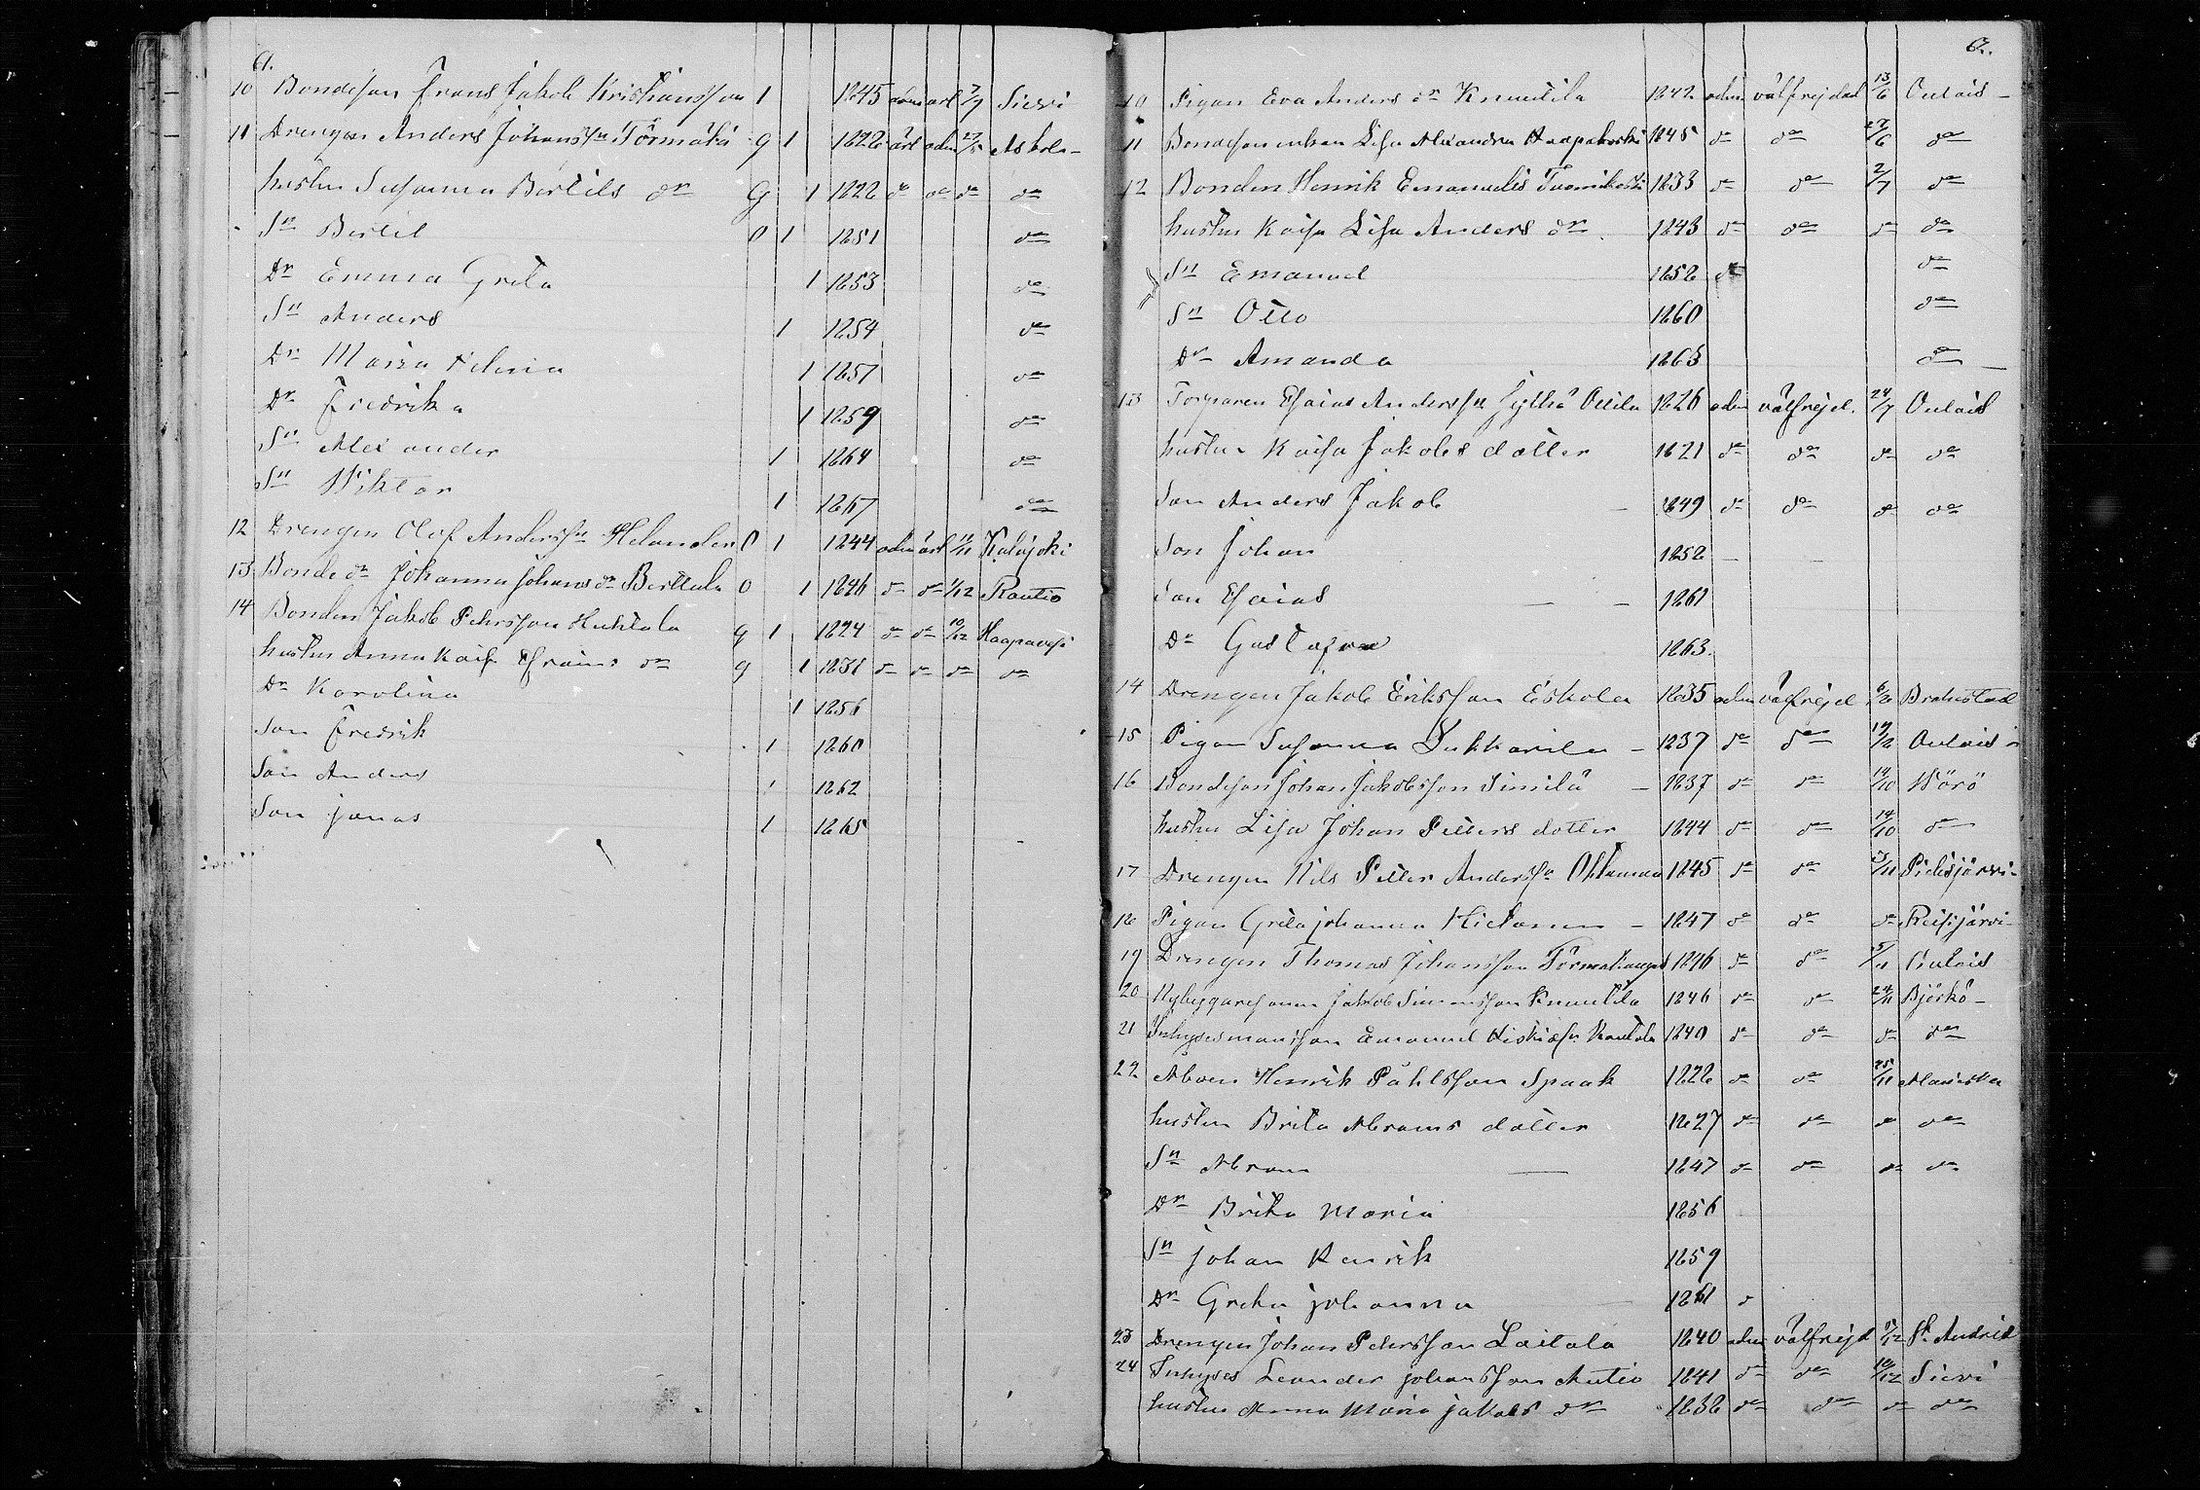 a.
10 Bondeson Frans Jakob Kristiansson 1 1845 adm ärl 7/9 Sievi
11 Drengen Anders Johanss:n Törmälä g 1 1828 ärl adm Askola
hustru Susanna Bertils dr g 1 1828 do do do do
Sn Bertil o 1 1851 do
Dr Emma Greta 1 1853 do
Sn Anders 1 1854 do
Dr Maria 1 1857 do
Dr Fredrika 1 1859 do
Sn Alexander 1 1864 do
Sn Wiktor 1 1867 do
12 Drengen Olof Anderss:n Helander o 1 1844 adm ärl Kalajoki
13 Bonde dr Johanna Johans dr Berttula o 1 1846 do do 1/12 Rautio
14 Bonden Jakob Pehrsson Huhtala g 1 1824 do do 10/12 Haapavesi
hustru Anna Kaisa Efraims dr g 1 1831 do do do do
Dr Karolina 1 1856
Son Fredrik 1 1860
Son Anders 1 1862
Son Jonas 1 1865
a.
10 Pigan Eva Anders dr Knuutila 1842 adm välfrejdad 13/6 Oulais
11 Lisa Alexandra Haapakoski 1845 do do 27/6 do
12 Bonden Henrik Emanuels Tuomikoski 1833 do do 2/7 do
hustru Kaisa Lisa Anders dr 1843 do do do do
Sn Emanuel 1858 do do
Sn Otto 1860 do
Dr Amanda 1863 do
13 Torparen Esaias Anderss:n 1826 adm välfrejd. 24/7 Oulais
hustru Kaisa Jakobs dotter 1821 do do do do
Son Anders Jakob 1849 do do do do
Son Johan 1852
Son Esaias 1861
Dr Gustafva 1863.
14 Drengen Jakob Eriksson Eskola 1835 adm välfrejd Brahestad
15 Pigan Susanna Sukkarila 1837 do do Oulais
16 Bondeson Johan Jakobsson Similä 1837 do do 14/10 Wörö
hustru Lisa Johan Petters dotter 1844 do do 14/10 do
17 Drengen Nils Petter Anderss:n 1845 do do Pidisjärvi
18 Pigan Greta Johanna Hietanen 1847 do do do Reisjärvi
19 Drengen Thomas Johansson 1846 do do Oulais
20 Nybyggaresonen Jakob Simonsson Knuutila 1846 do do 24/11 Björkö
21 Inhysesmansson Emanuel 1840 do do do do
22 Åboen Henrik Påhlsson Spaak 1828 do do 25/11 Alavieska
hustru Brita Abrams dotter 1827 do do do do
Sn Abram 1847 do do do do
Dr Brita Maria 1856
Sn Johan Henrik 1859
Dr Greta Johanna 1861
23 Drengen Johan Pehrsson Laitala 1840 adm välfrejd St. Andreæ
24 Inhyses Leander Johansson Autio 1841 do do 10/12 Sievi
hustru Anna Maria Jakobs dr 1838 do do do do